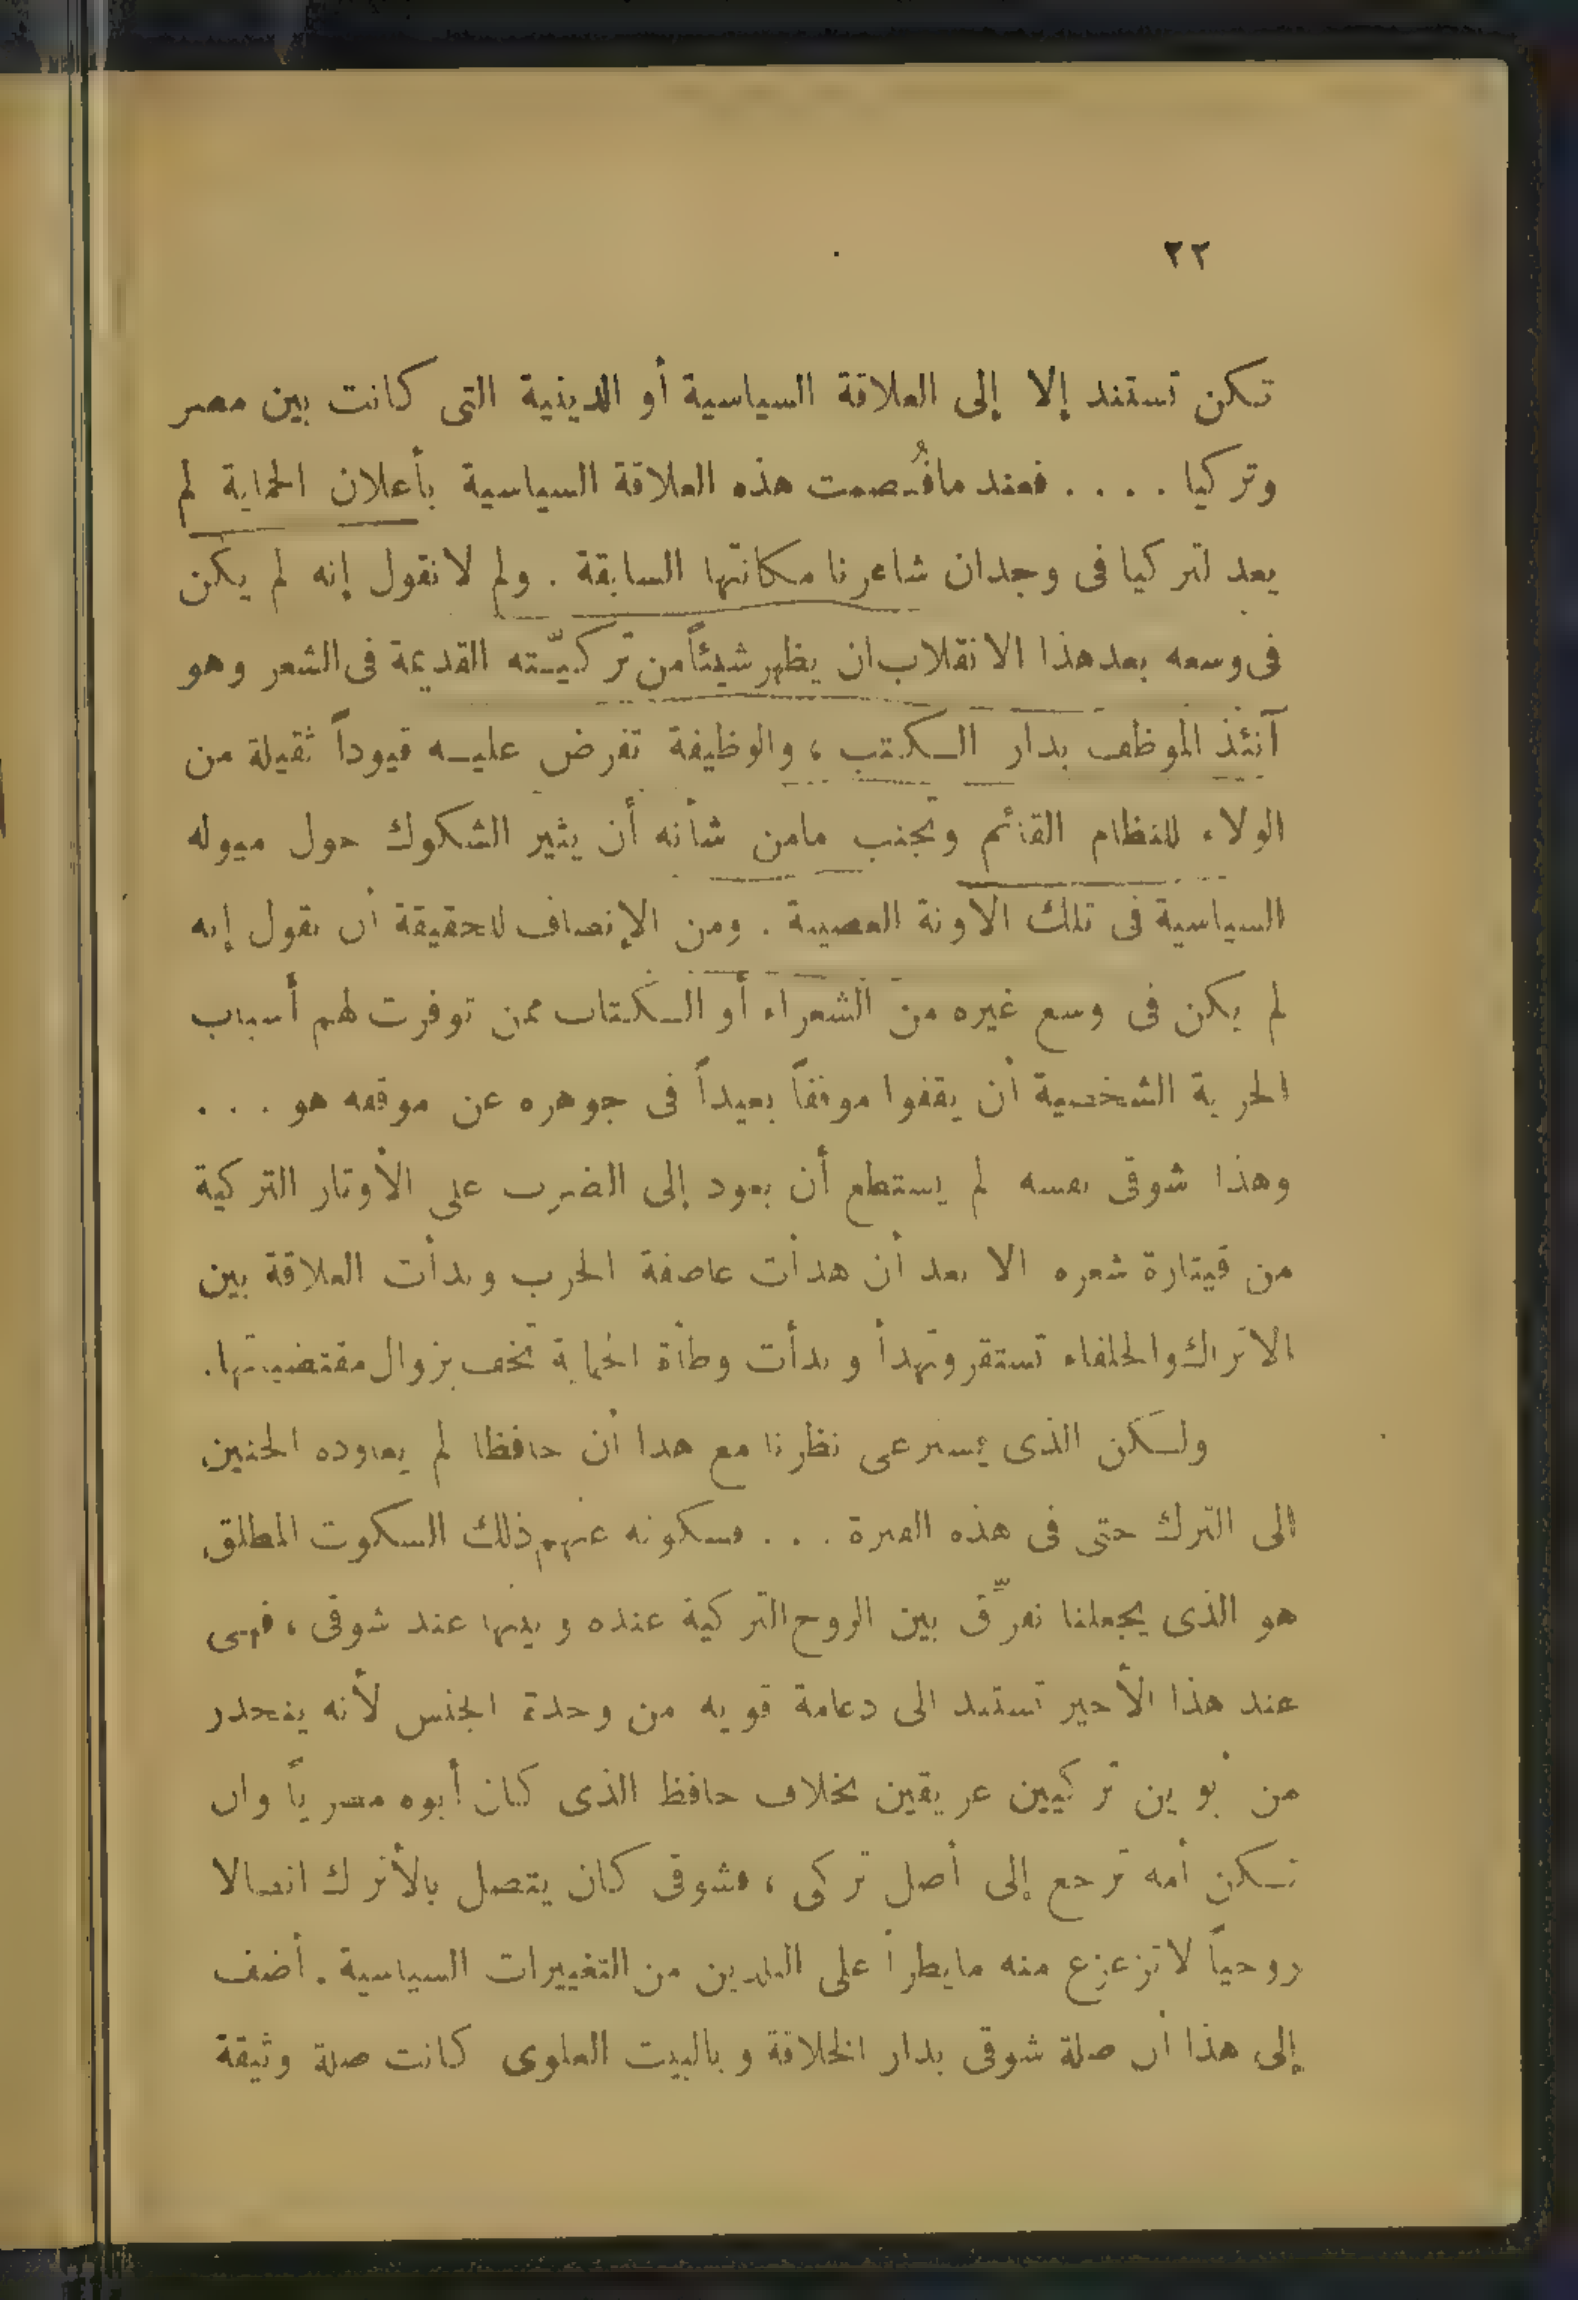 ٢٢
تكن تستند إلا إلى العلاقة السياسية أو الدينية التى كانت بين مصر
وتركيا .... فعند مافُصمت هذه العلاقة السياسية بأعلان الحماية لم
يعد لتركيا فى وجدان شاعرنا مكانتها السابقة . ولم لانقول إنه لم يكن
فى وسعه بعد هذا الانقلاب ان يظهر شيئاً من تركيّته القديمة فى الشعر وهو
آنئذ الموظف بدار الكتب ، والوظيفة تفرض عليه قيوداً ثقيلة من
الولاء للنظام القائم وتجنب مامن شأنه أن يثير الشكوك حول ميوله
السياسية فى تلك الاونة العصيبة . ومن الإنصاف للحقيقة أن نقول إنه
لم يكن فى وسع غيره من الشعراء أو الكتاب ممن توفرت لهم أسباب
الحرية الشخصية أن يقفوا موقفاً بعيداً فى جوهره عن موقفه هو ...
وهذا شوقى نفسه لم يستطع أن يعود إلى الضرب على الأوتار التركية
من قيتارة شعره الا بعد أن هدأت عاصفة الحرب وبدأت العلاقة بين
الاتراك والحلفاء تستقر وتهدأ وبدأت وطأة الحماية تخف بزوال مقتضياتها.
ولكن الذى يسترعى نظرنا مع هذا أن حافظا لم يعاوده الحنين
الى الترك حتى فى هذه الفترة ... فسكوته عنهم ذلك السكوت المطلق
هو الذى يجعلنا نفرِّق بين الروح التركية عنده وبينها عند شوقى ، فهى
عند هذا الأخير تستند الى دعامة قويه من وحدة الجنس لأنه ينحدر
من أبوين تركيين عريقين بخلاف حافظ الذى كان أبوه مصرياً وان
تكن أمه ترجع إلى أصل تركى ، فشوقى كان يتصل بالأترك اتصالا
روحياً لاتزعزع منه مايطرأ على البلدين من التغييرات السياسية . أضف
إلى هذا أن صلة شوقى بدار الخلافة وبالبيت العلوى كانت صلة وثيقة